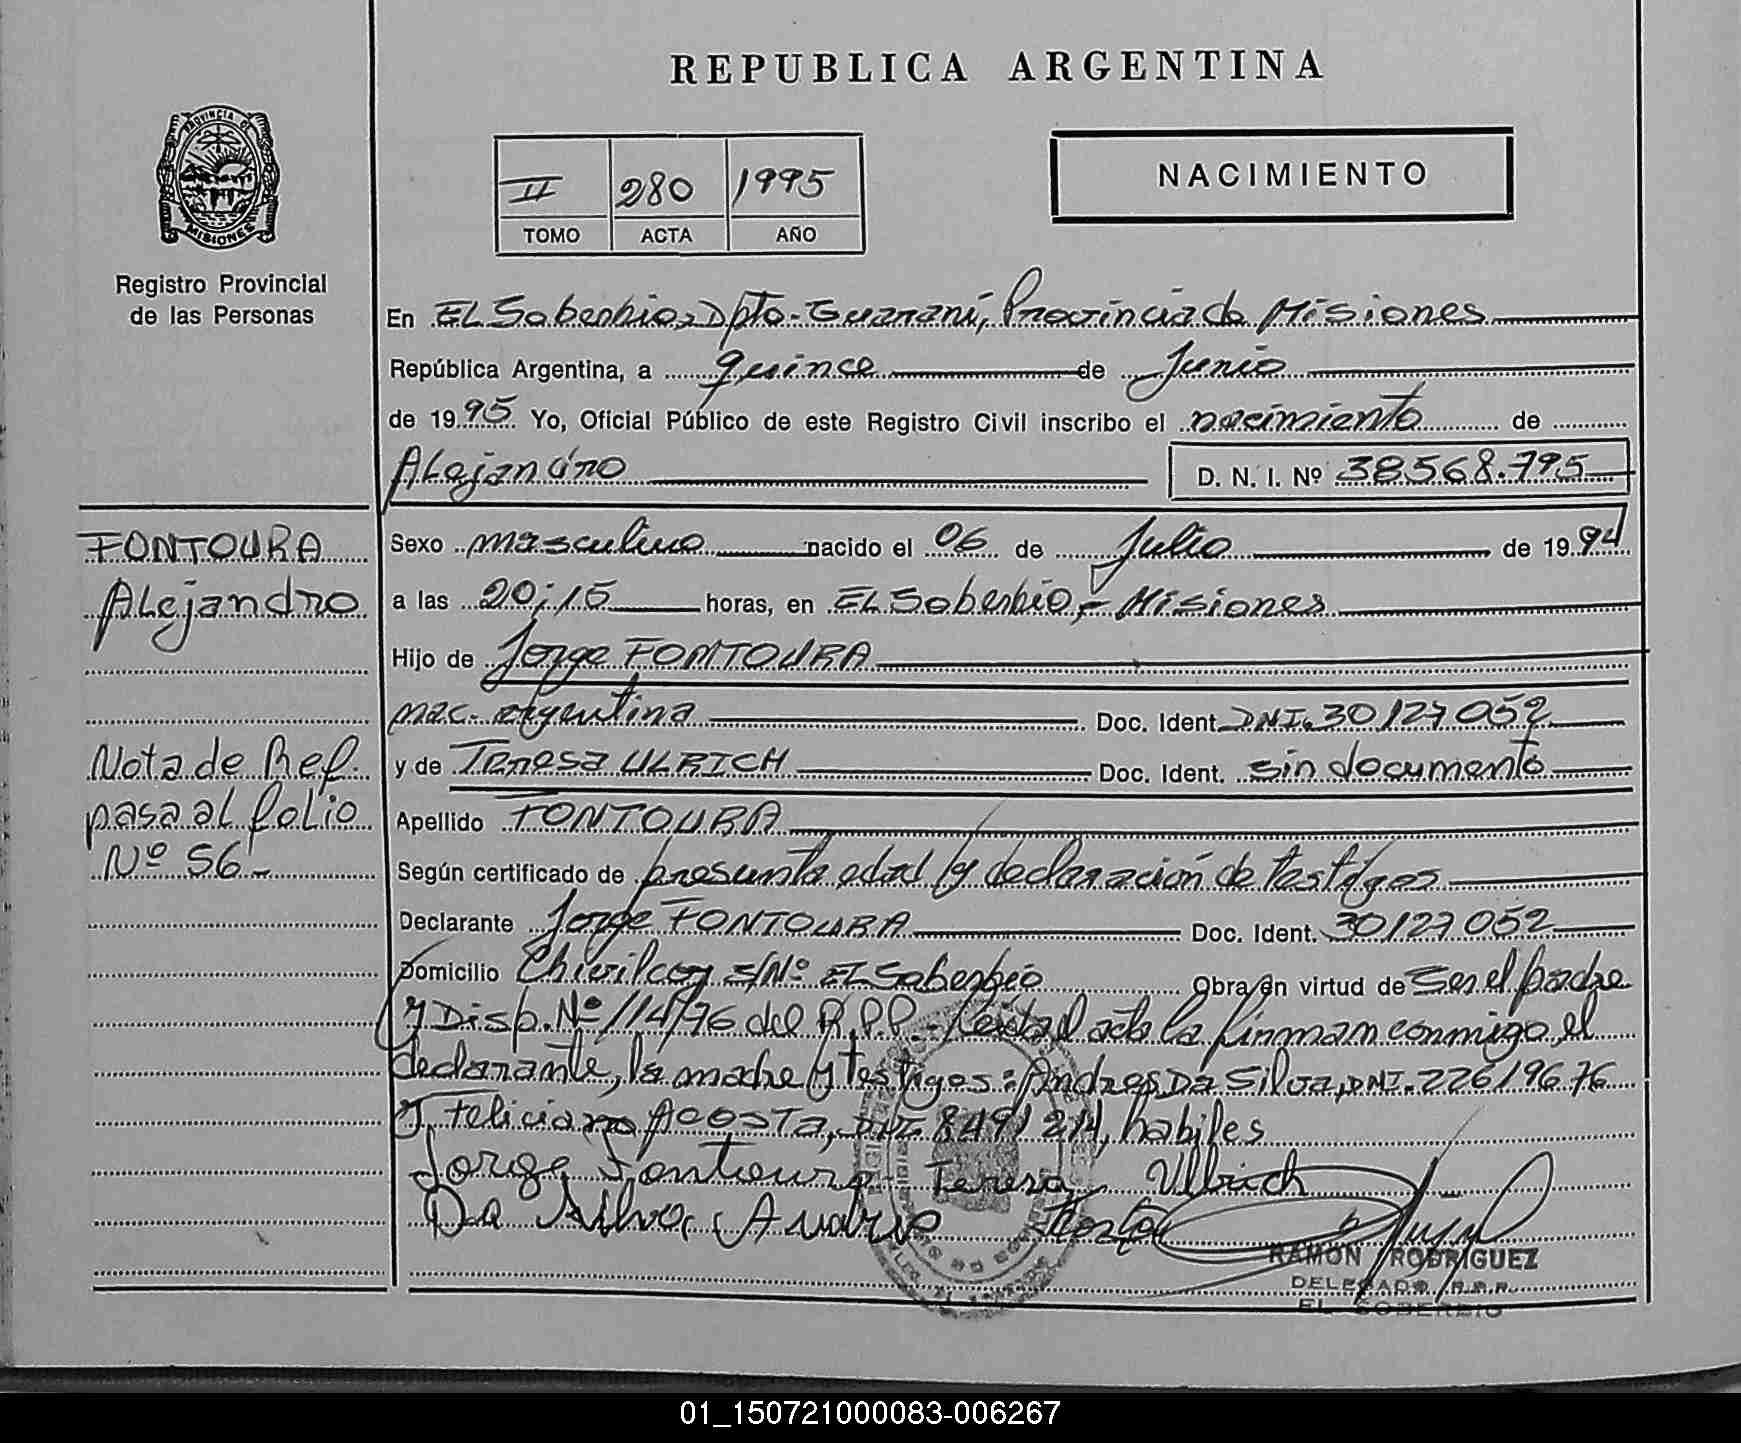 REPUBLICA ARGENTINA
PROVINCIA DE
MISIONES
Registro Provincial
de las Personas
II 280 1995
TOMO ACTA AÑO
NACIMIENTO
En EL Soberbio, Dpto. Guaraní, Provincia de Misiones
República Argentina, a quince de Junio
de 1995 Yo, Oficial Público de este Registro Civil inscribo el nacimiento de
Alejandro D. N. I. Nº 38568.795
FONTOURA
Alejandro
Nota de Ref.
pasa al folio
Nº 56-
Sexo masculino nacido el 06 de Julio de 1994
a las 20;15 horas, en EL Soberbio, - Misiones
Hijo de Jorge FONTOURA
nac. argentina Doc. Ident. DNI. 30127052
y de Teresa ULRICH Doc. Ident. sin documento
Apellido FONTOURA
Según certificado de presunta edad y declaración de testigos
Declarante Jorge FONTOURA Doc. Ident. 30127052
Domicilio S/Nº EL Soberbio Obra en virtud de Ser el padre
y Disp. Nº 114/96 del R.P.P. acta la firman conmigo el
declarante, la madre y testigos: Andres Da Silva, DNI. 22619676
y Feliciano ACOSTA, DNI 8491214, habiles
Jorge Fontoura Teresa Ulbrich
Da Silva, Andres
RAMON RODRIGUEZ
DELEGADO R.P.P.
EL SOBERBIO
01_150721000083-006267